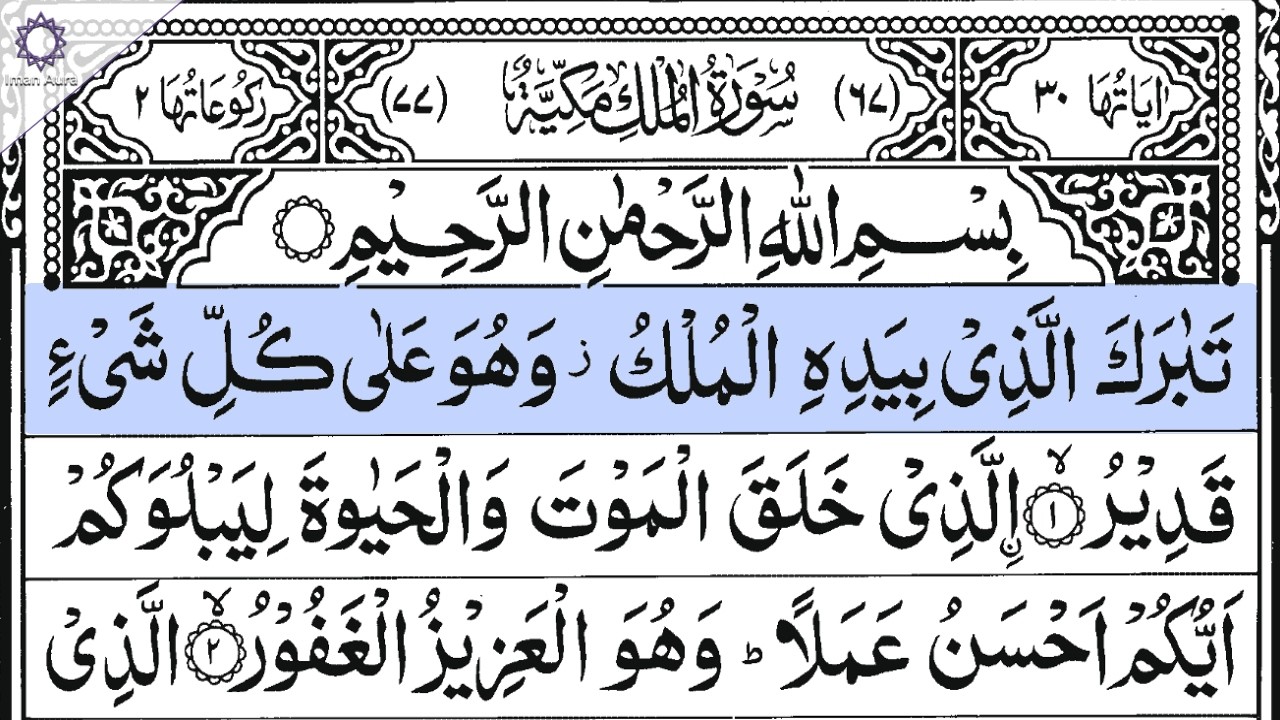 Iman Aura
اٰيَاتُهَا ٣٠ (٦٧) سُوْرَةُ الْمُلْكِ مَكِّيَّةٌ (٧٧) رُكُوْعَاتُهَا ٢
بِسْمِ اللّٰهِ الرَّحْمٰنِ الرَّحِيْمِ
تَبٰرَكَ الَّذِىْ بِيَدِهِ الْمُلْكُ ز وَهُوَ عَلٰى كُلِّ شَىْءٍ
قَدِيْرُ ۙ﴿١﴾ اۨلَّذِىْ خَلَقَ الْمَوْتَ وَالْحَيٰوةَ لِيَبْلُوَكُمْ
اَيُّكُمْ اَحْسَنُ عَمَلًا ؕ وَهُوَ الْعَزِيْزُ الْغَفُوْرُ ۙ﴿٢﴾ الَّذِىْ